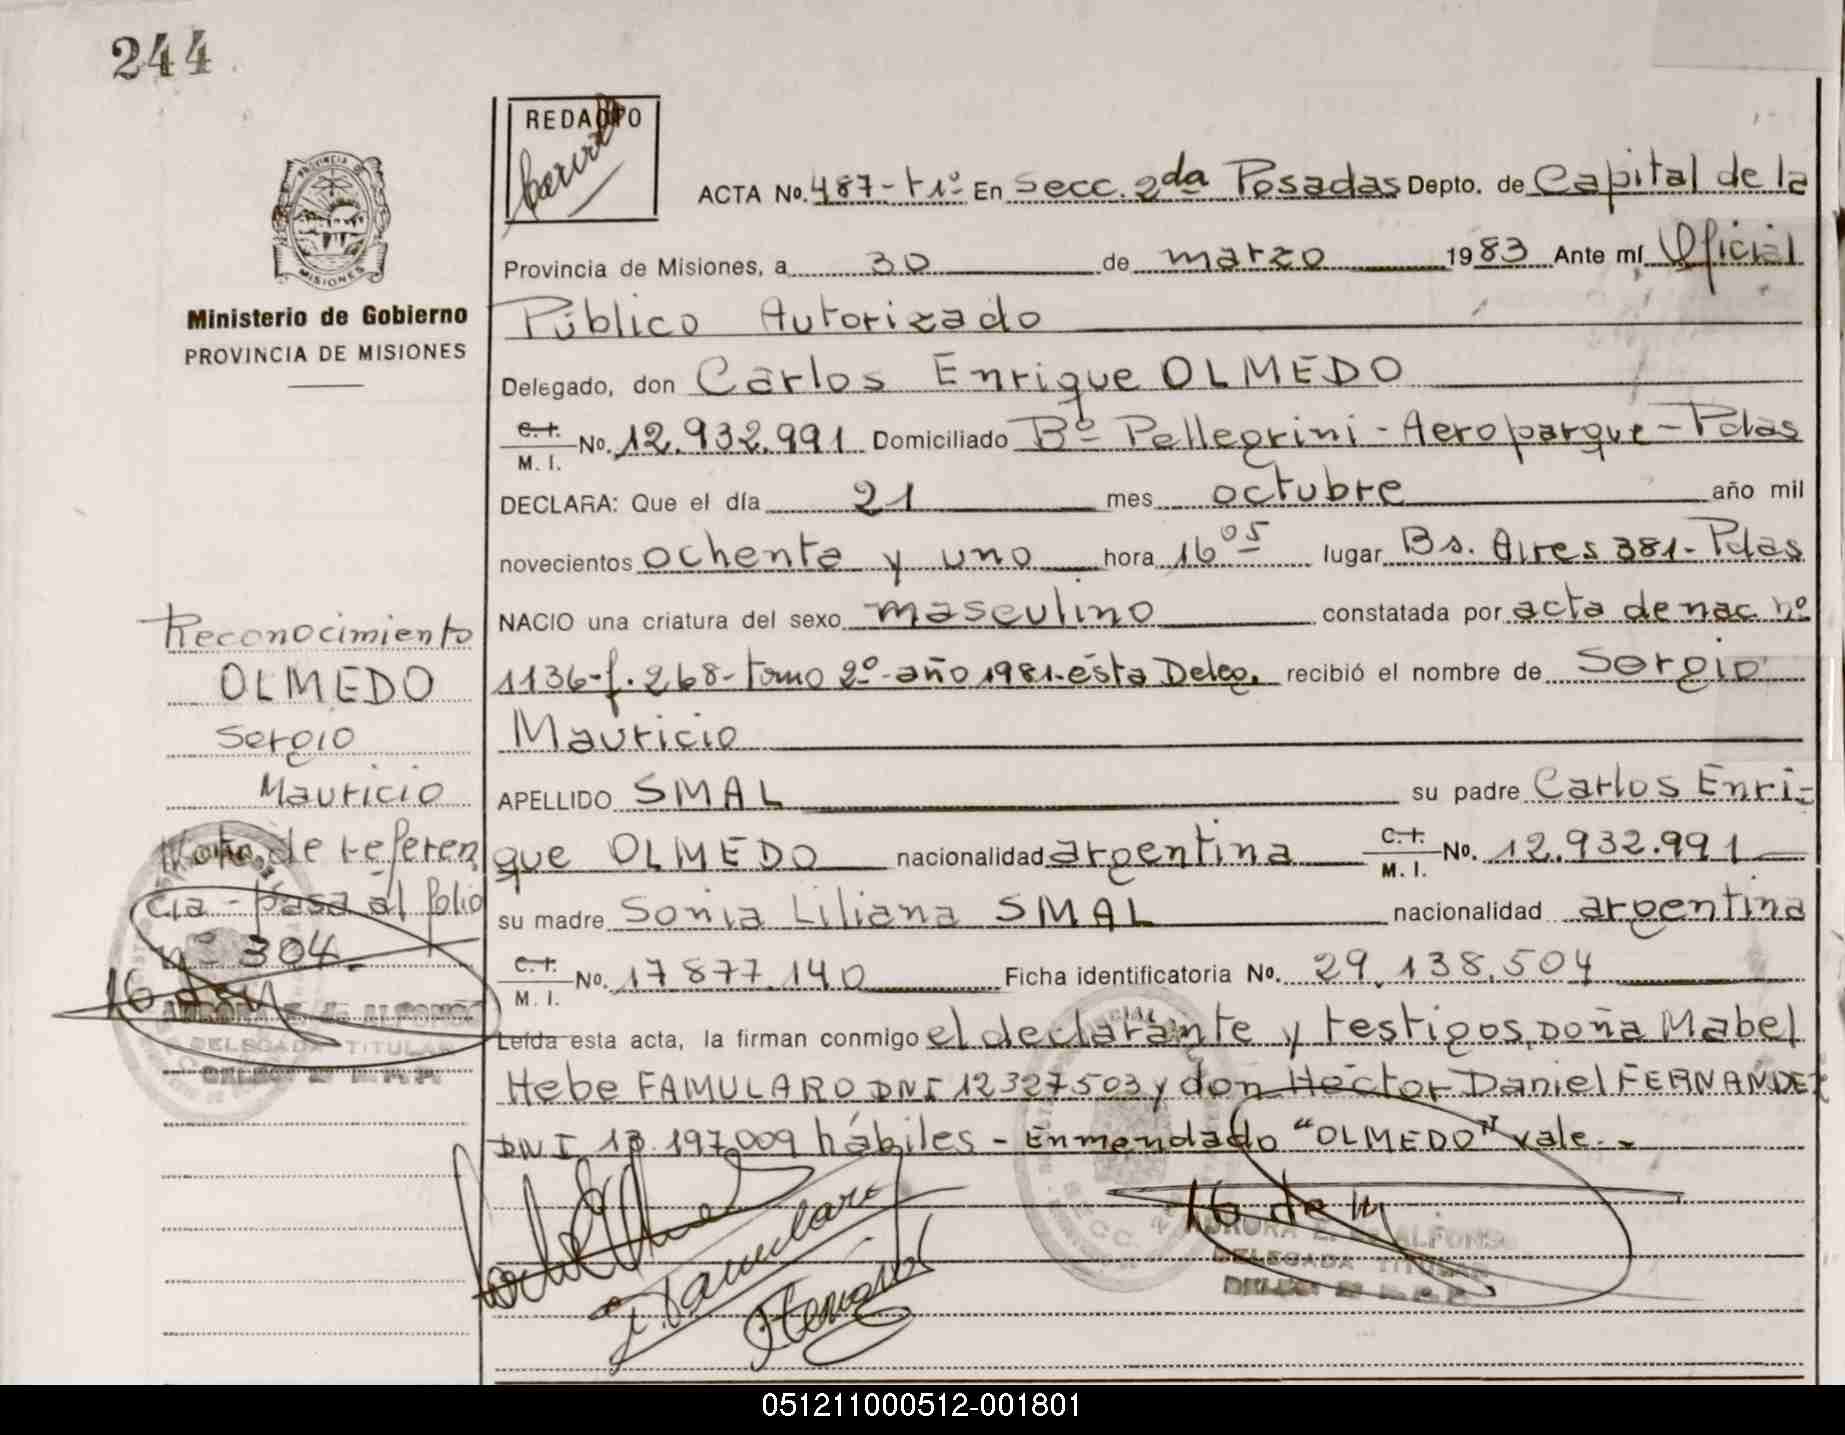 244
REDACTO
MISIONES
Ministerio de Gobierno
PROVINCIA DE MISIONES
ACTA No. 487-t1º En Secc. 2da Posadas Depto. de Capital de la
Provincia de Misiones, a 30 de marzo 1983 Ante mí, Oficial
Público Autorizado
Delegado, don Carlos Enrique OLMEDO
C.I. M. I. No. 12.932.991 Domiciliado Bº Pellegrini - Aeroparque - Pdas
DECLARA: Que el día 21 mes octubre año mil
novecientos ochenta y uno hora 16 05 lugar Bs. Aires 381 - Pdas
NACIO una criatura del sexo masculino constatada por acta de nac nº
1136-f.268-tomo 2º-año 1981-ésta Deleg. recibió el nombre de Sergio
Mauricio
APELLIDO SMAL su padre Carlos Enri-
que OLMEDO nacionalidad argentina C.I. M. I. No. 12.932.991
su madre Sonia Liliana SMAL nacionalidad argentina
C.I. M. I. No. 17877.140 Ficha identificatoria No. 29.138.504
Leída esta acta, la firman conmigo el declarante y testigos, Doña Mabel
Hebe FAMULARO DNI 12327503 y don Héctor Daniel FERNANDEZ
DNI 13.197.009 hábiles - Enmendado "OLMEDO" vale.-
Reconocimiento
OLMEDO
Sergio
Mauricio
Nota de referen
cia - pasa al folio
nº 304.
AURORA E. de ALFONSO
DELEGADA TITULAR
AURORA E. de ALFONSO
DELEGADA TITULAR
051211000512-001801